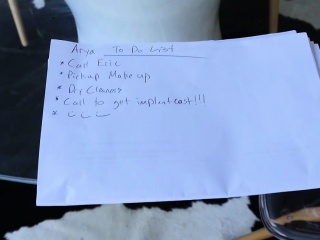 Arya To Do List
* Call Eric
* Pickup Make up
* Dry Cleaners
* Call to get implant cost!!!
*